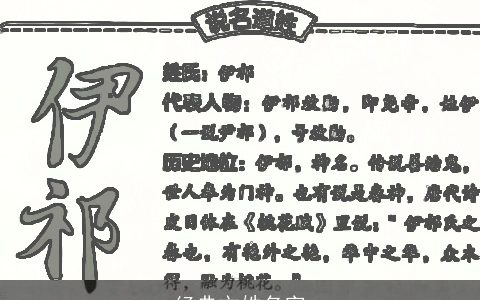 说名道姓
伊祁
姓氏：伊祁
代表人物：伊祁放勋，即尧帝，姓伊
（一说尹祁），号放勋。
历史地位：伊祁，神名。传说善治鬼，
世人奉为门神。也有说是春神，唐代诗
皮日休在《桃花赋》里说："伊祁氏之
春也，有艳外之艳，华中之华，众木
得，融为桃花。"